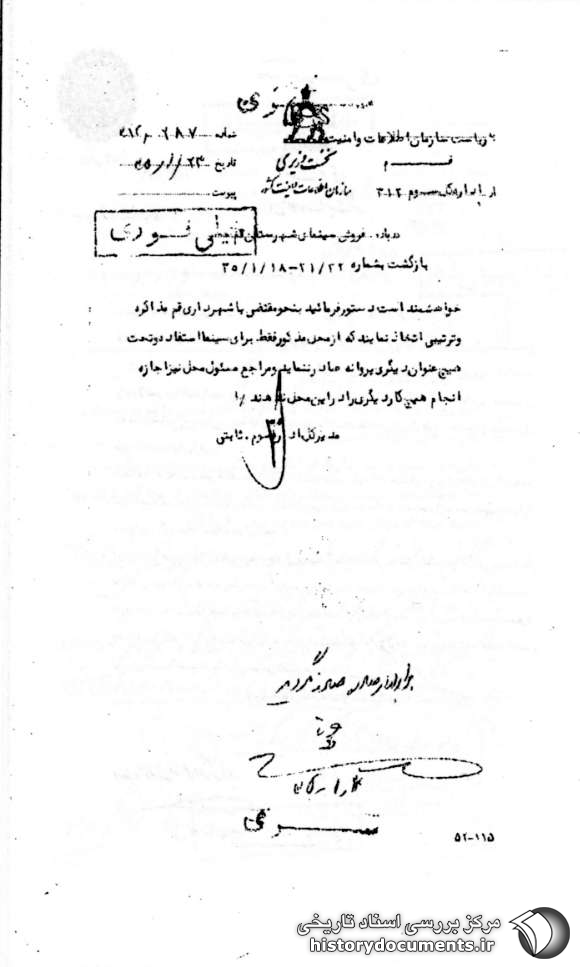 سری
به ریاست سازمان اطلاعات و امنیت
قم
از اداره کل سوم ۳۱۲
نخست وزیری
سازمان اطلاعات و امنیت کشور
شماره
تاریخ
پیوست
خیلی فوری
درباره . فروش سینمای شهرستان قم
بازگشت بشماره ۲۱/۲۲-۳۵/۱/۱۸
خواهشمند است دستور فرمائید بنحو مقتضی با شهرداری قم مذاکره
و ترتیبی اتخاذ نمایند که از محل مذکور فقط برای سینما استفاده و تحت
هیچ عنوان دیگری پروانه صادر ننماید و مراجع مسئول محل نیز اجازه
انجام هیچ کار دیگری را در این محل ندهند /ا
مدیر کل اداره سوم . ثابتی
ســـری
۵۲-۱۱۵
مرکز بررسی اسناد تاریخی
historydocuments.ir